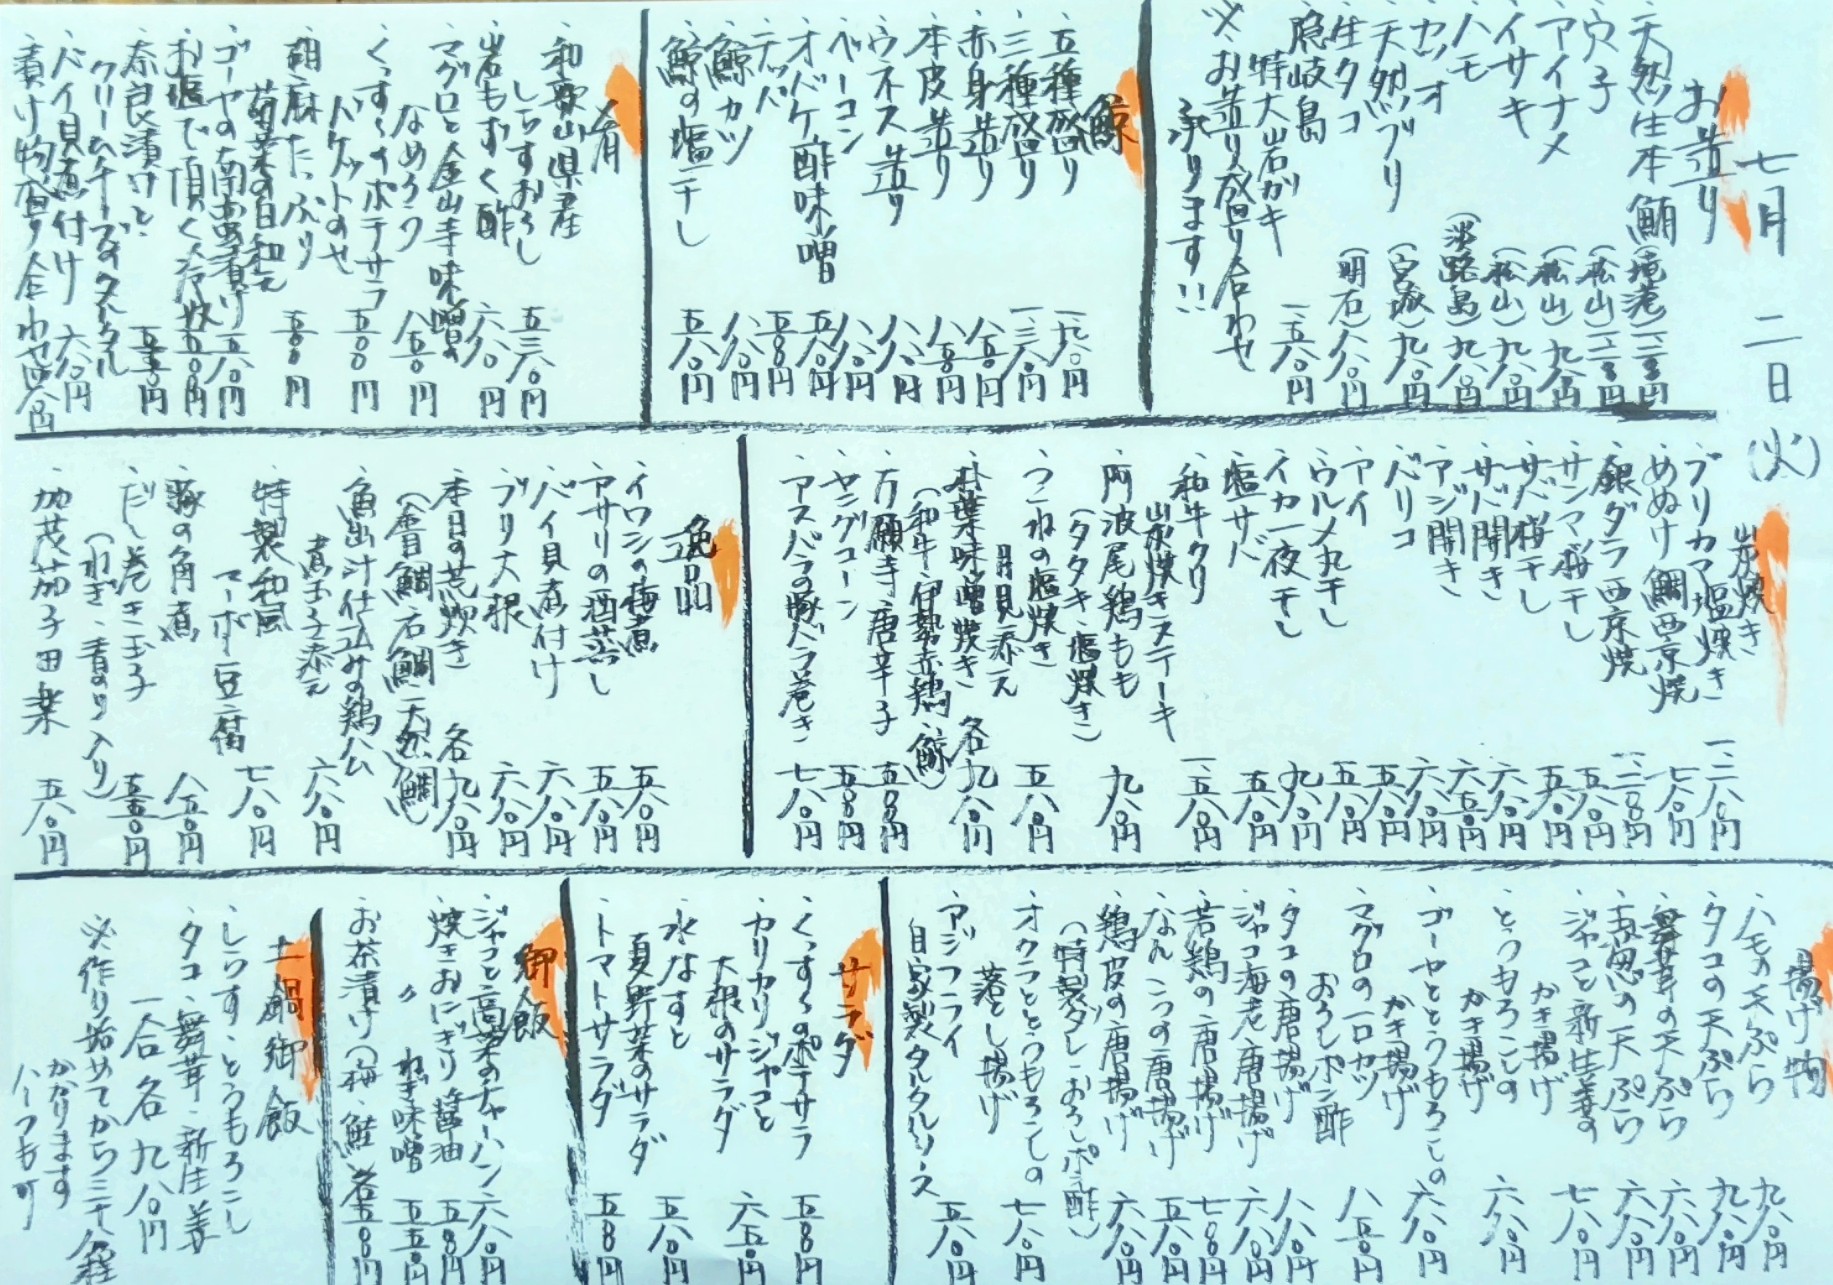 七月 二日 (火)
お造り
・天然生本鮪(境港)
・穴子(松山)
・アイナメ(松山)九八〇円
・イサキ(松山)九八〇円
・ハモ(淡路島)九八〇円
・カツオ(宮城)九八〇円
・天然ブリ
・生タコ(明石)八八〇円
・隠岐島
特大岩ガキ 一五八〇円
※お造り盛り合わせ
承ります!!
鯨
・五種盛り 一九八〇円
・三種盛り 一三八〇円
・赤身造り 八五〇円
・本皮造り 八五〇円
・ウネス造り 八八〇円
・ベーコン 八八〇円
・オバケ酢味噌 五八〇円
・テッパ 五八〇円
・鯨カツ 八八〇円
・鯨の塩干し 五八〇円
肴
・和歌山県産
しらすおろし 五三〇円
・岩もずく酢 六八〇円
・マグロと金山寺味噌の
なめろう 八五〇円
・くっすくのポテサラ
バケットのせ 五八〇円
・胡麻たっぷり
菊菜の白和え 五八〇円
・ゴーヤの南蛮漬け 五八〇円
・お塩で頂く冷奴 五〇〇円
・奈良漬けと
クリームチーズのタルタル 五五〇円
・バイ貝煮付け 六八〇円
・漬け物盛り合わせ
炭焼き
・ブリカマ塩焼き 一二八〇円
・めぬけ鯛西京焼 七八〇円
・銀ダラ西京焼 一二八〇円
・サンマ桜干し 五八〇円
・サバ桜干し 五八〇円
・サバ開き 六八〇円
・アジ開き 六五〇円
・バリコ 六八〇円
・アイ 五八〇円
・ウルメ丸干し 五八〇円
・イカ一夜干し 九八〇円
・塩サバ 五八〇円
・和牛クリ
炭焼きステーキ 一五八〇円
・阿波尾鶏もも
(タタキ・塩焼き) 九八〇円
・つくねの塩焼き
月見添え 五八〇円
・朴葉味噌焼き 各九八〇円
(和牛・伊勢赤鶏・鯨)
・万願寺唐辛子 五八〇円
・ヤングコーン 五八〇円
・アスパラの豚バラ巻き 七八〇円
逸品
・イワシの梅煮 五八〇円
・アサリの酒蒸し 五八〇円
・バイ貝煮付け 六八〇円
・ブリ大根 六八〇円
・本日の荒炊き 各九八〇円
(金目鯛・石鯛・天然鯛)
・魚出汁仕込みの鶏公
煮玉子添え 六八〇円
・特製和風
マーボー豆腐 七八〇円
・豚の角煮 八五〇円
・だし巻き玉子
(ねぎ・青のり入り) 五五〇円
・加茂茄子田楽 五八〇円
揚げ物
・ハモの天ぷら 九八〇円
・タコの天ぷら 九八〇円
・舞茸の天ぷら 六八〇円
・天ぷら 六八〇円
・ジャコと新生姜の
かき揚げ 七八〇円
・とうもろこしの
かき揚げ 六八〇円
・ゴーヤととうもろこしの
かき揚げ 六八〇円
・マグロの一口カツ
おろしポン酢 八五〇円
・タコの唐揚げ 八八〇円
・ジャコ海老唐揚げ 六八〇円
・若鶏の唐揚げ 七八〇円
・なんこつの唐揚げ 五八〇円
・鶏皮の唐揚げ 六八〇円
(特製ダレ・おろしポン酢)
・オクラととうもろこしの
落とし揚げ 七八〇円
・アジフライ
自家製タルタルソース 五八〇円
サラダ
・くっすくのポテサラ 五八〇円
・カリカリジャコと
大根のサラダ 六五〇円
・水なすと
夏野菜のサラダ 五八〇円
・トマトサラダ 五八〇円
御飯
・ジャコと高菜のチャーハン 六八〇円
・焼きおにぎり醤油 五五〇円
・〃 ねぎ味噌 五五〇円
・お茶漬け(梅・鮭)各五八〇円
土鍋御飯
・しらす・とうもろこし
・タコ・舞茸・新生姜
一合各九八〇円
※作り始めてから三十分程
かかります
ハーフも可